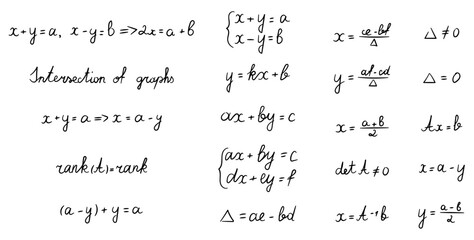 x+y=a, x-y=b =>2x=a+b
Intersection of graphs
x+y=a=>x=a-y
rank(A)=rank
(a-y)+y=a
{x+y=a
x-y=b
y=kx+b
ax+by=c
{ax+by=c
dx+ey=f
Δ=ae-bd
x=ce-bf/Δ
y=af-cd/Δ
x=a+b/2
detA≠0
x=A⁻¹b
Δ≠0
Δ=0
Ax=b
x=a-y
y=a-b/2